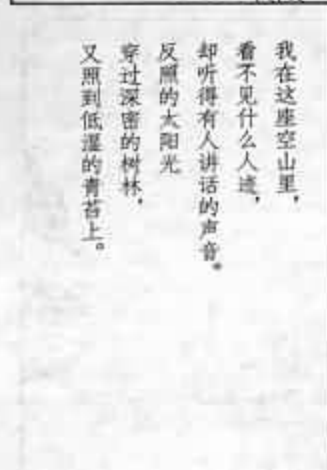 我在这座空山里，
看不见什么人迹，
却听得有人讲话的声音。
反照的太阳光
穿过深密的树林，
又照到低湿的青苔上。